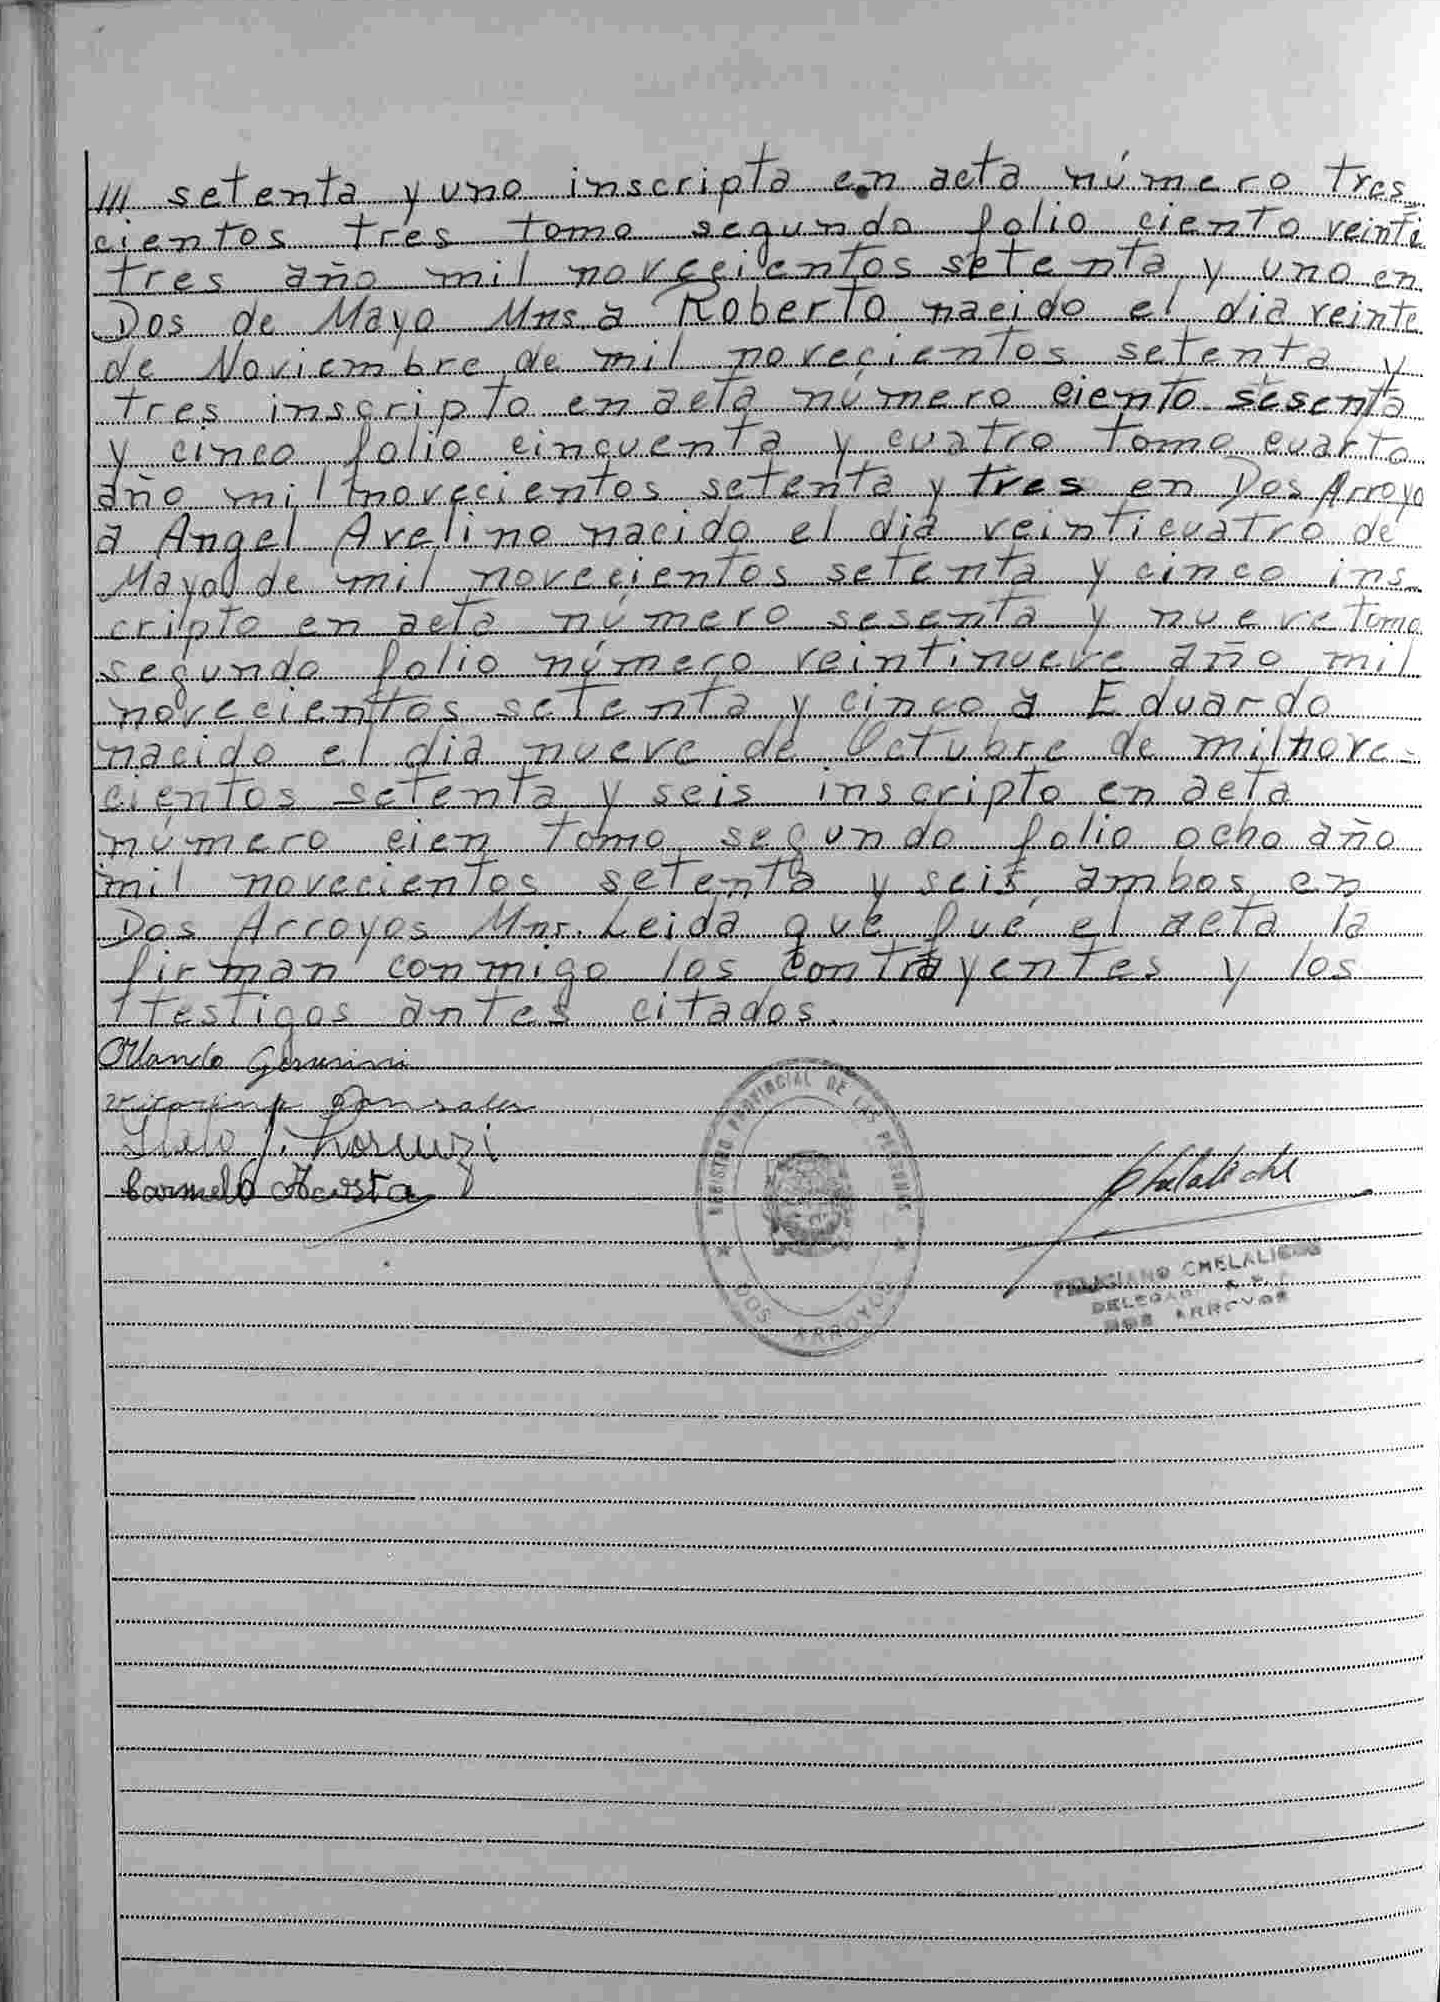 /// setenta y uno inscripta en acta número tres
cientos tres tomo segundo folio ciento veinti
tres año mil novecientos setenta y uno en
Dos de Mayo Mns a Roberto nacido el dia veinte
de Noviembre de mil novecientos setenta y
tres inscripto en acta número ciento sesenta
y cinco folio cincuenta y cuatro tomo cuarto
año mil novecientos setenta y tres en Dos Arroyo
a Angel Avelino nacido el dia veinticuatro de
Mayo de mil novecientos setenta y cinco ins
cripto en acta número sesenta y nueve tomo
segundo folio número veintinueve año mil
novecientos setenta y cinco a Eduardo
nacido el dia nueve de Octubre de mil nove-
cientos setenta y seis inscripto en acta
número cien tomo segundo folio ocho año
mil novecientos setenta y seis ambos en
Dos Arroyos Mns. Leida que fué el acta la
firman conmigo los contrayentes y los
testigos antes citados.
Orlando
Gonsales
Carmelo Acosta
REGISTRO PROVINCIAL DE LAS PERSONAS
DOS ARROYOS
FELICIANO CHELALICHE
DELEGAD
DOS ARROYOS